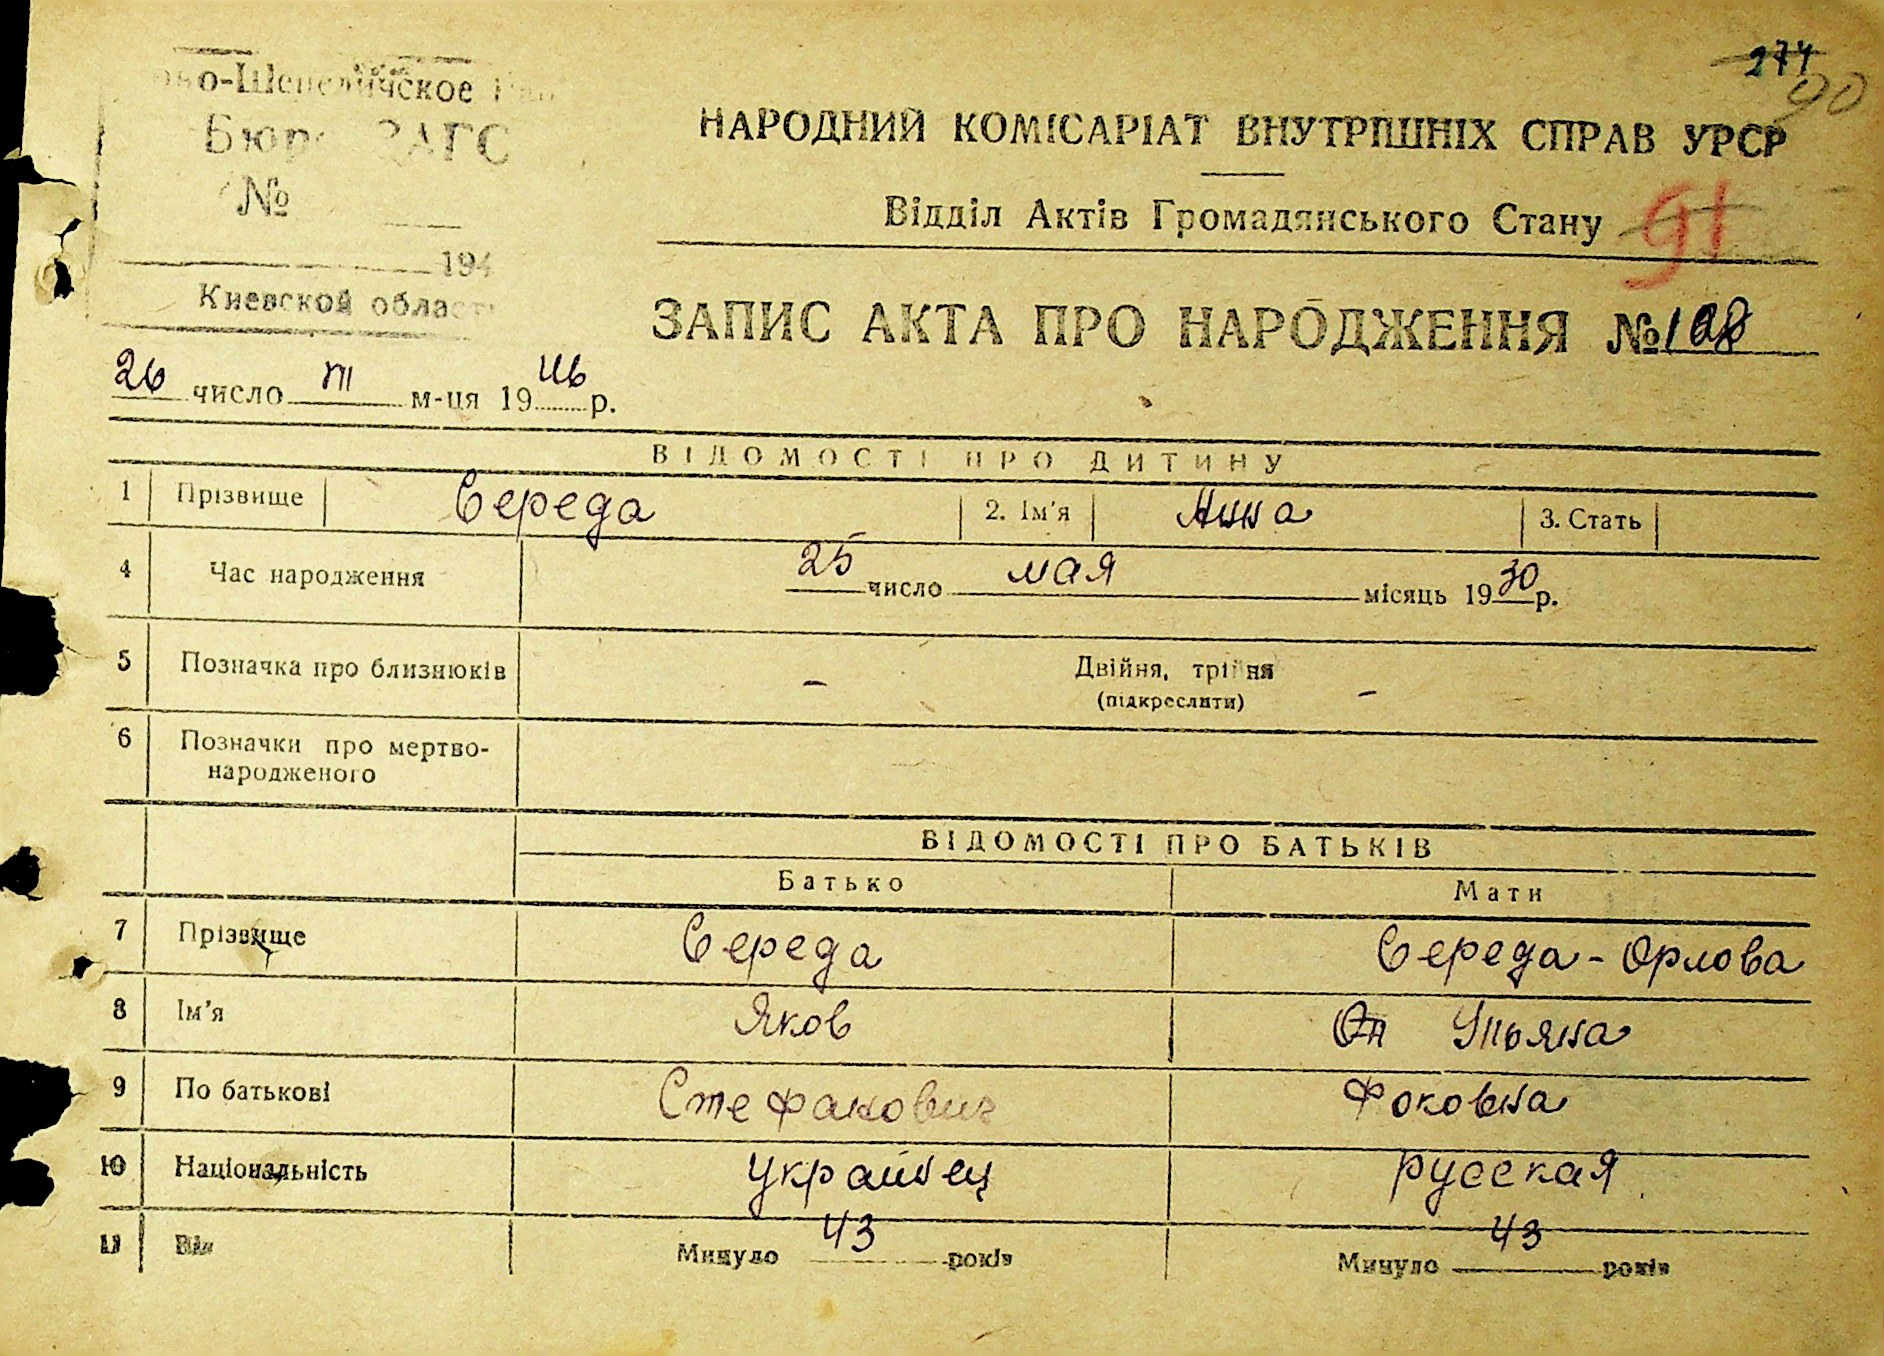 274
90
но-Шепеличское
Бюро ЗАГС
№
194
Киевской област
НАРОДНИЙ КОМІСАРІАТ ВНУТРІШНІХ СПРАВ УРСР
Відділ Актів Громадянського Стану
91
ЗАПИС АКТА ПРО НАРОДЖЕННЯ №128
26 число III м-ця 1946 р.
ВІДОМОСТІ ПРО ДИТИНУ
1 Прізвище Середа 2. Ім'я Анна 3. Стать
4 Час народження 25 число мая місяць 1930 р.
5 Позначка про близнюків – Двійня, трійня –
(підкреслити)
6 Позначки про мертво-
народженого
ВІДОМОСТІ ПРО БАТЬКІВ
Батько Мати
7 Прізвище Середа Середа-Орлова
8 Ім'я Яков Ульяна
9 По батькові Стефанович Фоковна
10 Національність украинец русская
11 Вік Минуло 43 років Минуло 43 років